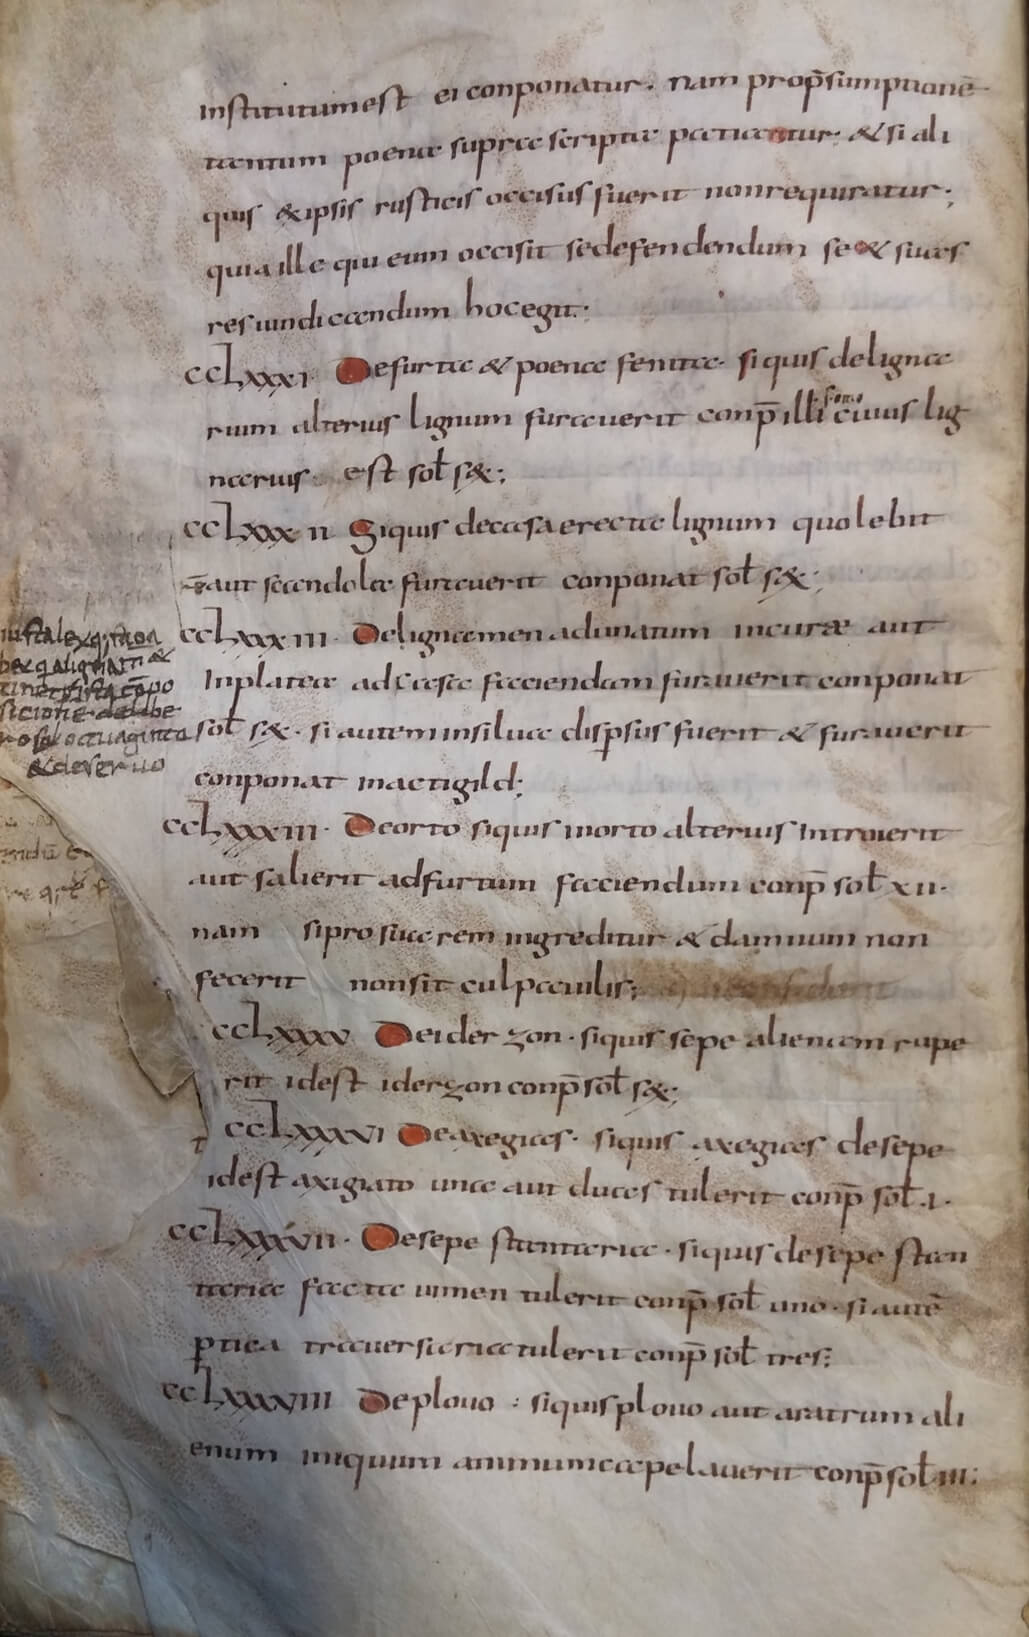 institutum est ei conponatur. nam prop̄sumptionē
tantum poenae supra scriptae patiantur. & si ali
quis & ipsis rusticis occisus fuerit non requiratur;
quia ille qui eum occisit se defendendum se & suas
res uindicandum hoc egit.
ccLxxxi Defurta & poena fenita. si quis de ligna
rium alterius lignum furauerit conp̄ illi cuius lig
narius est soł s&;
ccLxxxii Siquis de casa erecta lignum quolebit
aut scandola furauerit conponat soł s&;
ccLxxxiii. De lignamen adunatum in curæ aut
In platea ad casa faciendam furauerit conponat
soł s&. si autem in silua dispsus fuerit & furauerit
conponat in actigild;
ccLxxxiiii. De orto siquis in orto alterius introierit
aut salierit ad furtum faciendum conp̄ soł xii.
nam si pro sua rem ingreditur & damnum non
fecerit non sit culpauilis;
ccLxxxv De iderzon. siquis sepe alienam rupe
rit idest iderzon conp̄ soł s&;
ccLxxxvi De axegias. siquis axegias de sepe
idest axigiato una aut duas tulerit conp̄ soł .i.
ccLxxxvii. De sepe stantaria. siquis de sepe stan
taria facta uimen tulerit conp̄ soł uno. si autē
ꝑtica trauersaria tulerit conp̄ soł tres;
ccLxxxviii De plouo : siquis plouo aut aratrum ali
enum iniquum animum capelauerit conp̄ soł iii;
sicione de libe
& de seruo